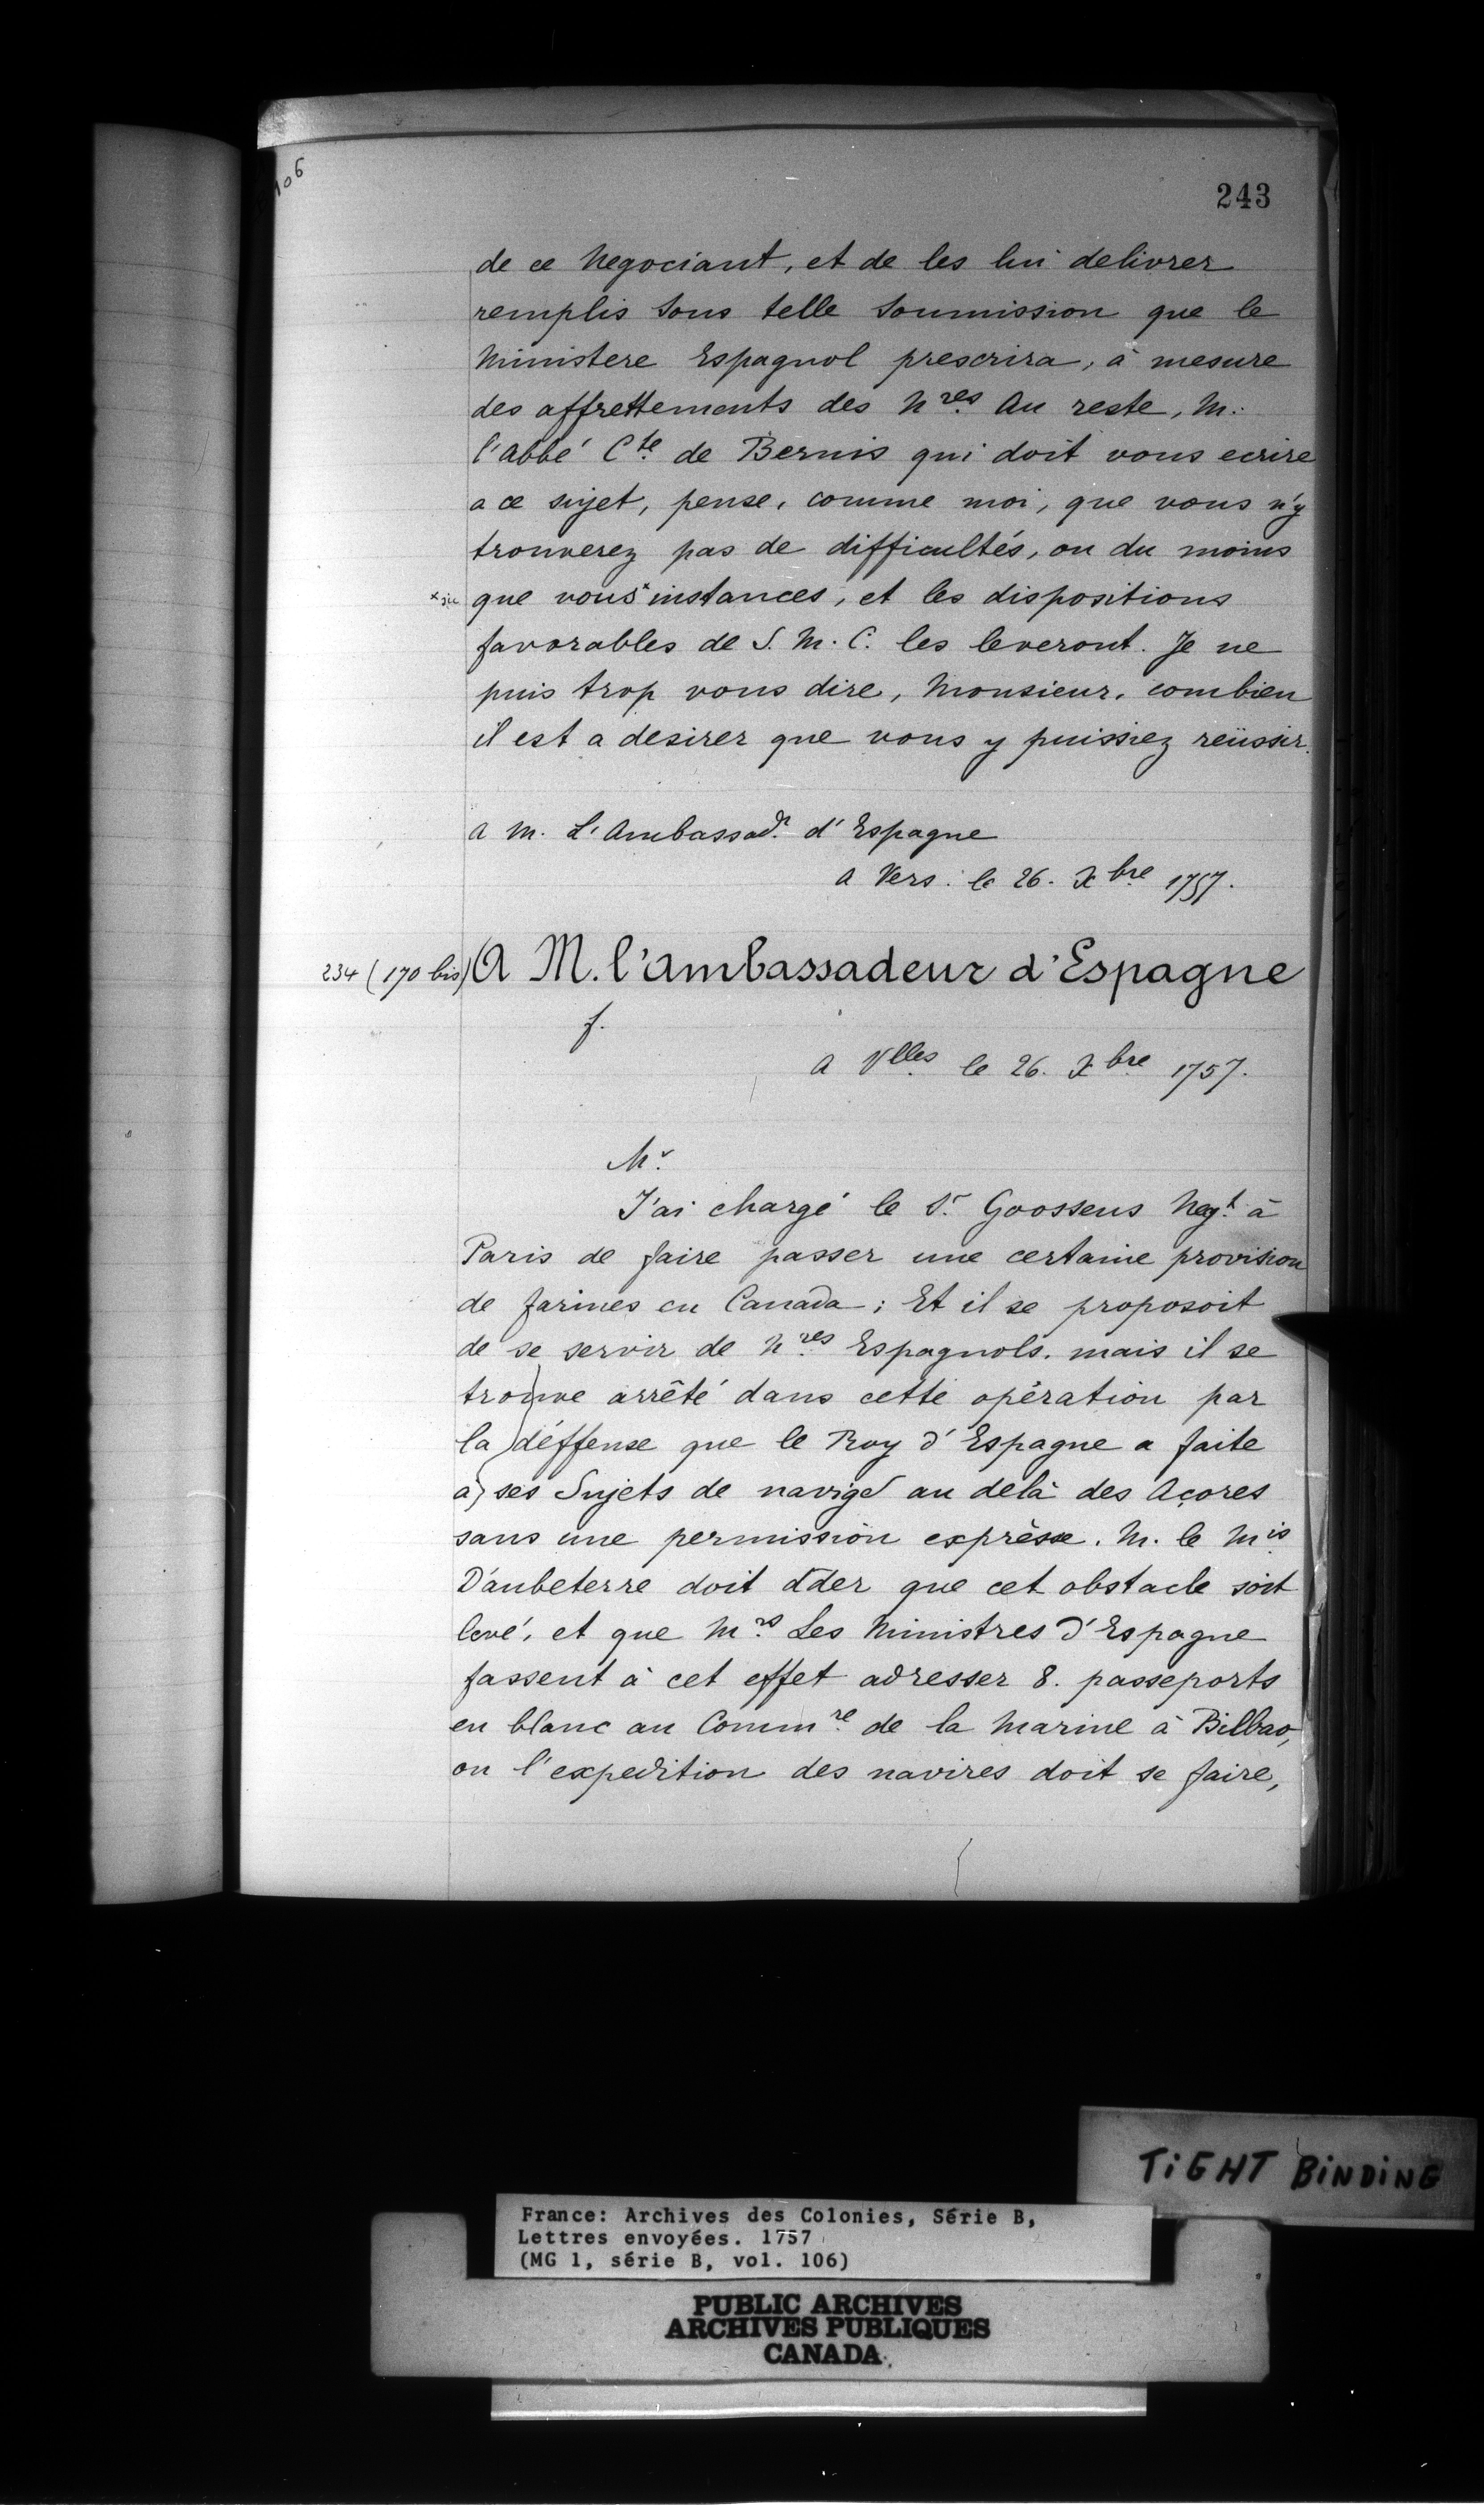 106
243
de ce Negociant, et de les lui delivrer
remplis sous telle soumission que le
Ministere Espagnol prescrira, à mesure
des affrettements des Nres. Au reste, M.
l'abbé Cte. de Bernis qui doit vous ecrire
a ce sujet, pense, comme moi, que vous n'y
trouverez pas de difficultés, ou du moins
x sic que vous x instances, et les dispositions
favorables de S. M. C. les leveront. Je ne
puis trop vous dire, Monsieur, combien
il est a desirer que vous y puissiez reüssir.
a M. L'Ambassadr. d'Espagne
a Vers. le 26. Xbre 1757.
234 (170 bis) A M. l'ambassadeur d'Espagne
f.
a Vlles. le 26. Xbre 1757.
Mr.
J'ai chargé le Sr. Goossens Negt. à
Paris de faire passer une certaine provision
de farines en Canada ; Et il se proposoit
de se servir de Nres. Espagnols. mais il se
trouve arrêté dans cette opération par
la déffense que le Roy d'Espagne a faite
à ses Sujets de navigr au delà des Açores
sans une permission exprèsse. M. le Mis.
D'aubeterre doit dder que cet obstacle soit
levé, et que Mrs. Les Ministres d'Espagne
fassent à cet effet adresser 8. passeports
en blanc au Commre. de la Marine à Bilbao,
ou l'expedition des navires doit se faire,
TiGHT BiNDiNG
France: Archives des Colonies, Série B,
Lettres envoyées. 1757
(MG 1, série B, vol. 106)
PUBLIC ARCHIVES
ARCHIVES PUBLIQUES
CANADA